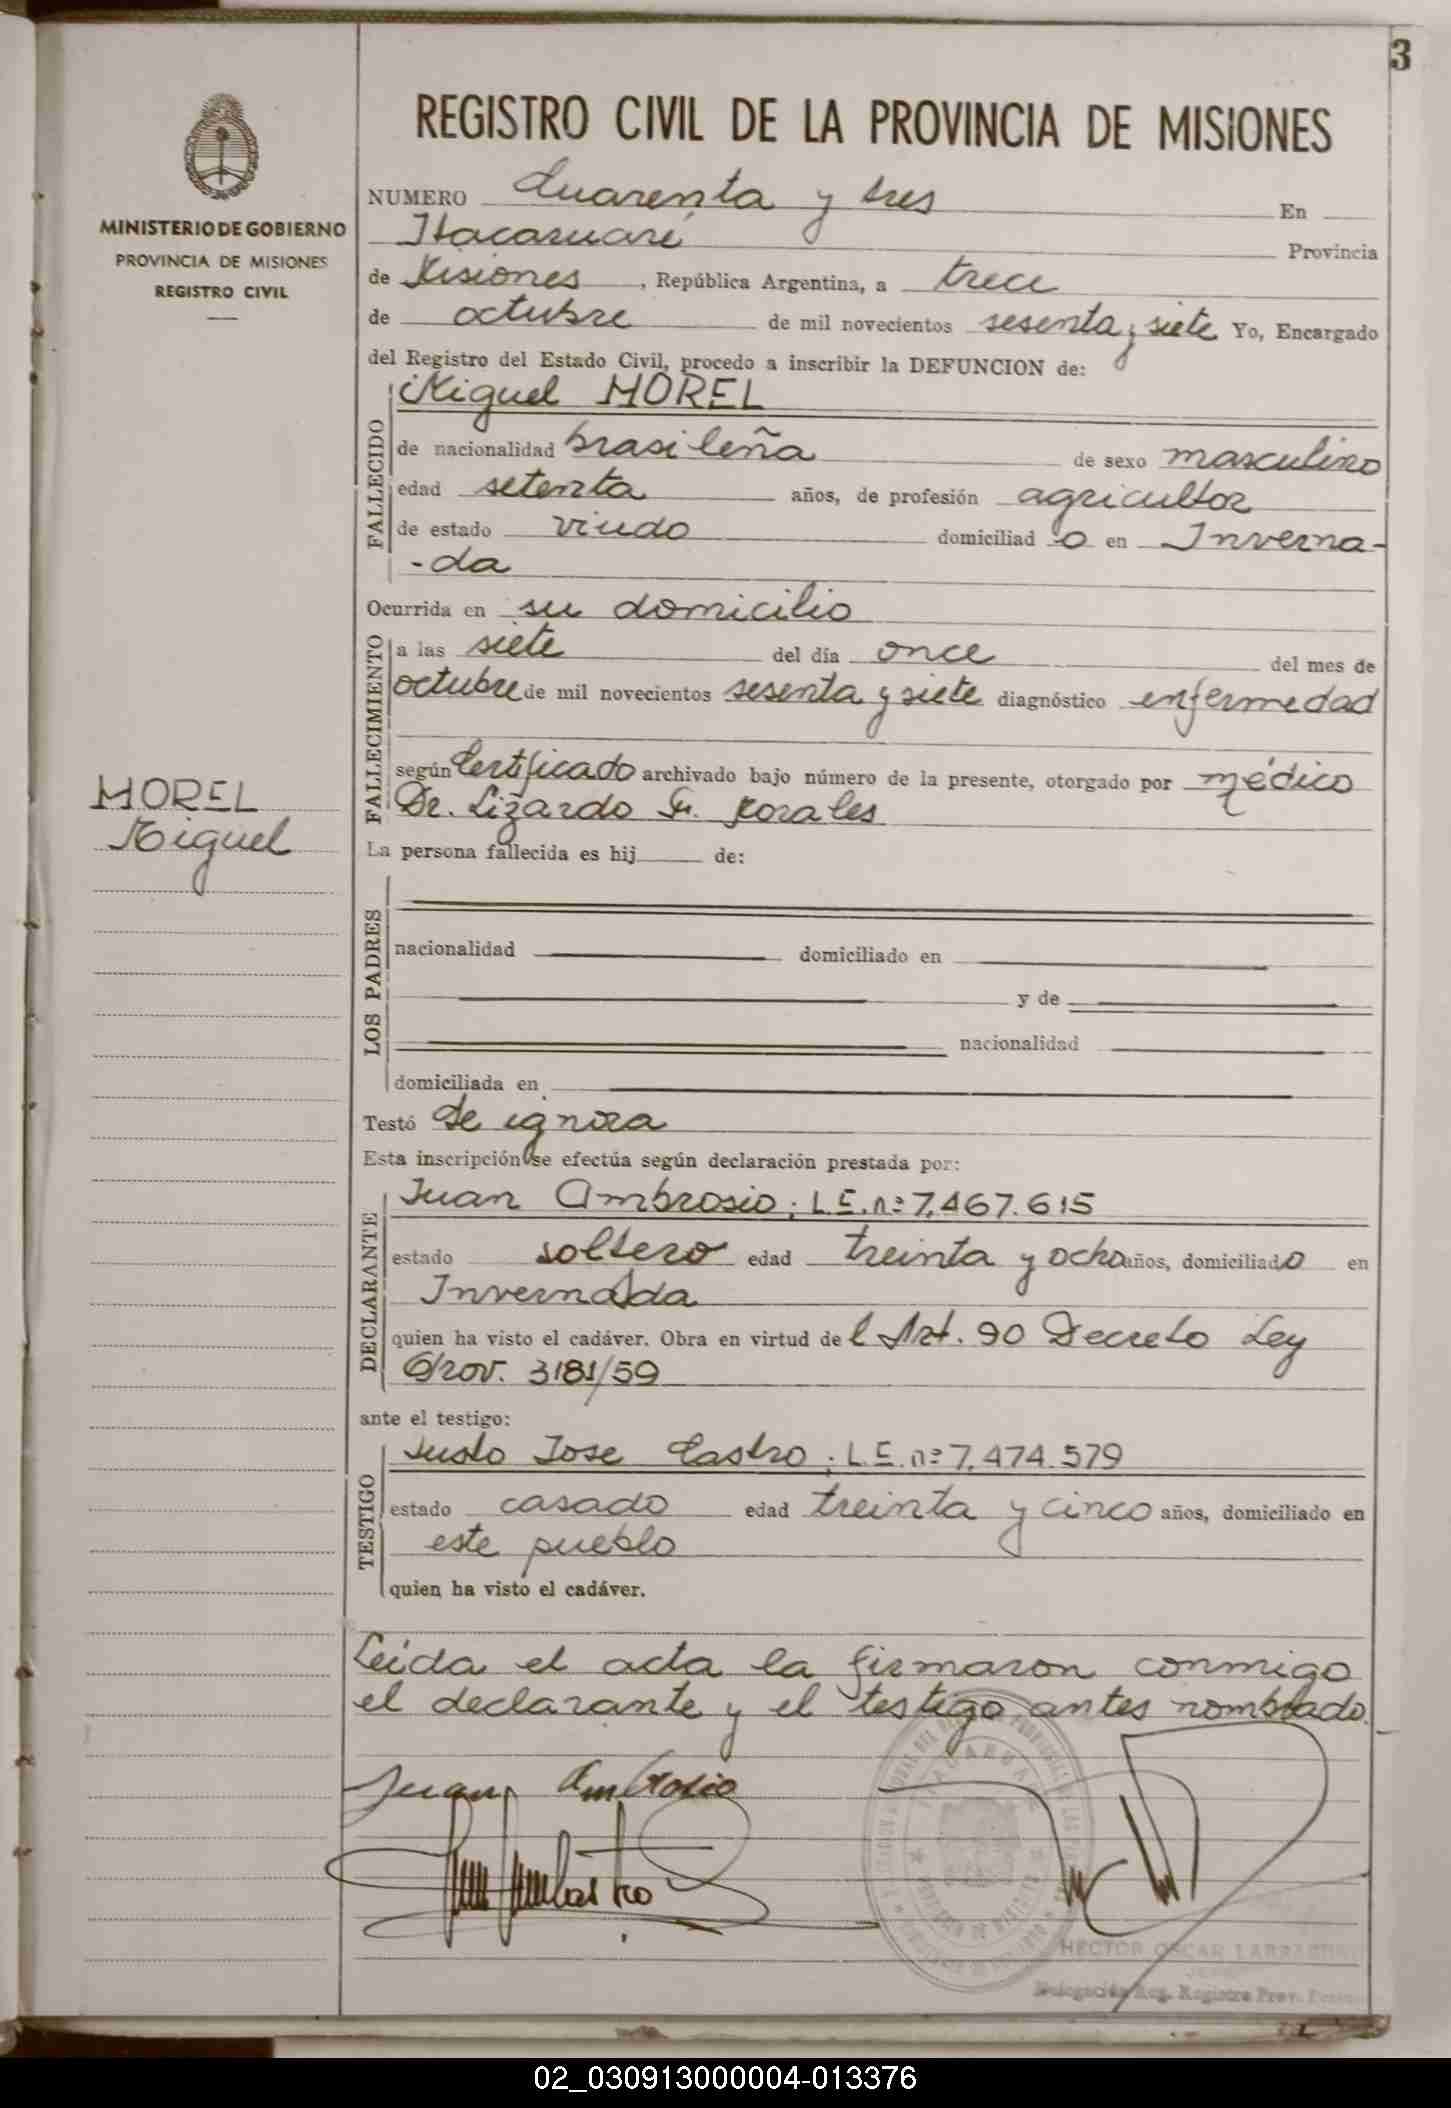 3
REGISTRO CIVIL DE LA PROVINCIA DE MISIONES
MINISTERIO DE GOBIERNO
PROVINCIA DE MISIONES
REGISTRO CIVIL
NUMERO Cuarenta y tres En
Itacaruaré Provincia
de Misiones, República Argentina, a trece
de octubre de mil novecientos sesenta y siete Yo, Encargado
del Registro del Estado Civil, procedo a inscribir la DEFUNCION de:
FALLECIDO
Miguel MOREL
de nacionalidad brasileña de sexo masculino
edad setenta años, de profesión agricultor
de estado viudo domiciliad o en Inverna-
-da
Ocurrida en su domicilio
FALLECIMIENTO
a las siete del día once del mes de
octubre de mil novecientos sesenta y siete diagnóstico enfermedad
según Certificado archivado bajo número de la presente, otorgado por médico
Dr. Lizardo
MOREL
Miguel
La persona fallecida es hij de:
LOS PADRES
nacionalidad domiciliado en
y de
nacionalidad
domiciliada en
Testó Se ignora
Esta inscripción se efectúa según declaración prestada por:
DECLARANTE
Juan Ambrosio; L.E. nº 7.467.615
estado soltero edad treinta y ocho años, domiciliado en
Invernada
quien ha visto el cadáver. Obra en virtud de l Art. 90 Decreto Ley
Prov. 3181/59
ante el testigo:
TESTIGO
Justo Jose Castro; L.E. nº 7.474.579
estado casado edad treinta y cinco años, domiciliado en
este pueblo
quien ha visto el cadáver.
Leida el acta la firmaron conmigo
el declarante y el testigo antes nombrado.
Juan Ambrosio
HECTOR OSCAR
02_030913000004-013376